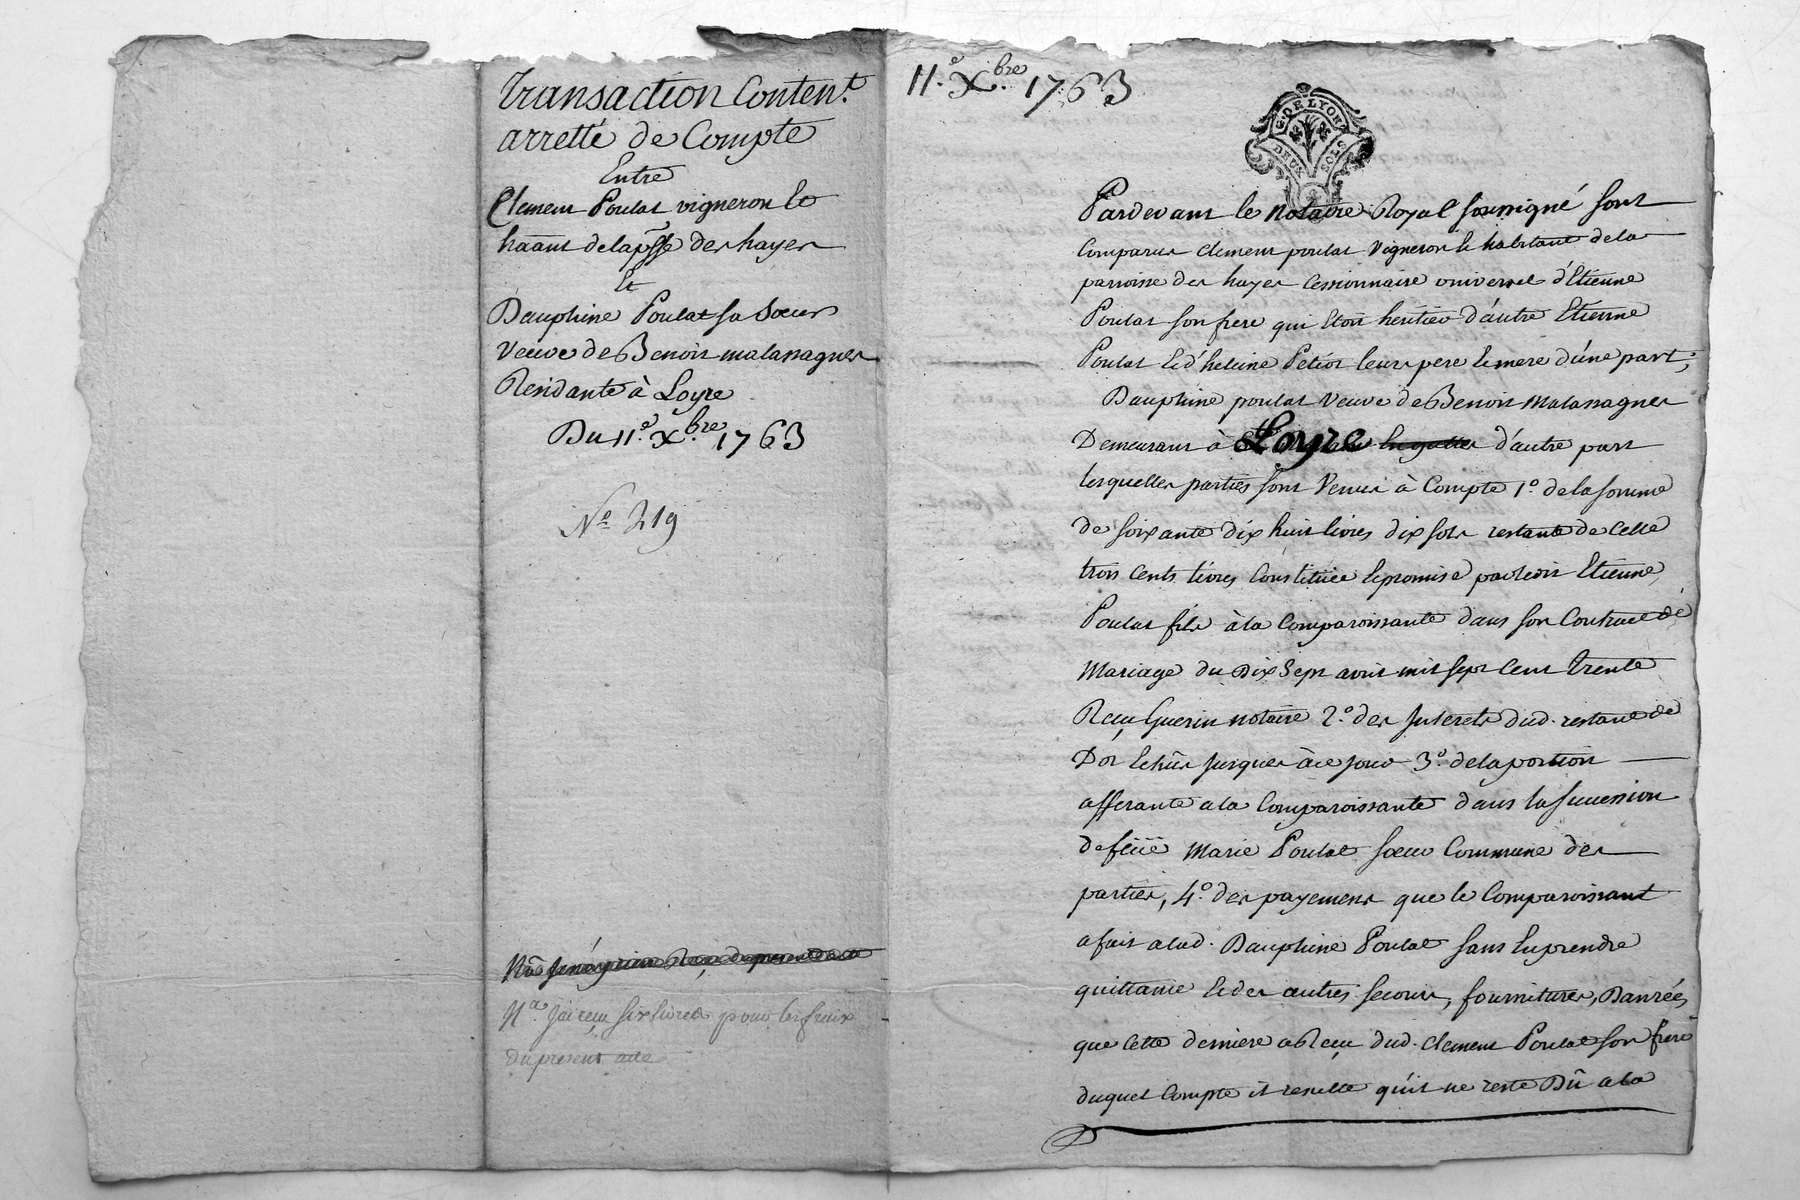 Transaction Conten.t
arretté de Compte
Entre
Clement Poulat vigneron et
haānt de la p̄sse des hayes
Et
Dauphine Poulat sa Soeur
Veuve de Benoit malassagnes
Residante à Loyre
Du 11.e X.bre 1763
N.o 219
N.a J'ai reçu six livres pour les fraix
du present acte
11.e X.bre 1763
G. DE LYON
DEUX SOLS
Pardevant le notaire Royal soussigné sont
Comparus Clement poulat Vigneron et habitant de la
parroisse des hayes Cessionnaire universel d'Etienne
Poulat son frere qui Etoit heritier d'autre Etienne
Poulat et d'heleine Petiot leurs pere et mere d'une part;
Dauphine poulat Veuve de Benoit Malassagnes
Demeurant à Loyre d'autre part
lesquelles parties sont Venues à Compte 1.o de la somme
de soixante dix huit livres dix sols restante de Celle
trois Cents livres Constituée et promise par ledit Etienne
Poulat fils à la Comparoissante dans son Contract de
Mariage du Dix Sept avril mil sept Cent trente
Reçu Guerin notaire 2.o des Interets dud. restant de
Dot Echûs jusques à ce jour 3.o de la portion
afferante a la Comparoissante dans la succession
de feüe Marie Poulat soeur Commune des
parties, 4.o des payemens que le Comparoissant
a fait a lad. Dauphine Poulat sans En prendre
quittance et des autres secours, fournitures, Danrées,
que Cette derniere a Reçu dud. Clement Poulat son frere
duquel Compte il resulte qu'il ne reste Dû a la